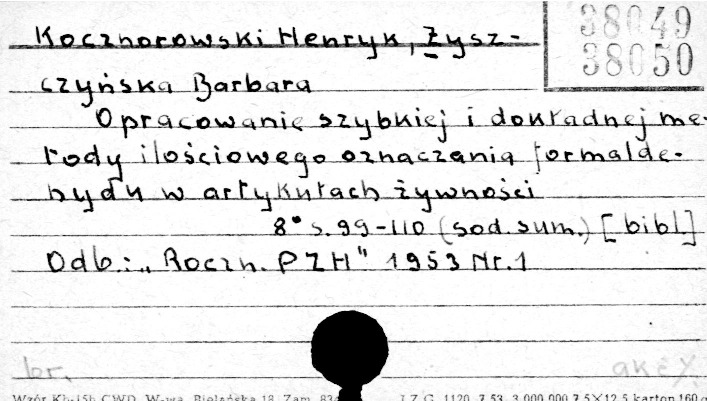 38049
38050
Kocznorowski Henryk, Żysz-
czyńska Barbara
Opracowanie szybkiej i dokładnej me-
tody ilościowego oznaczania formalde-
hydu w artykułach żywności
8° s. 99-110 (sod. sum.) [bibl]
Odb.: „Roczn. PZH" 1953 Nr. 1
br.
akc Y.
Wzór Kb-15b CWD, W-wa, Bielańska 18 Zam. 1120 7.53 3.000.000 7,5×12,5 karton 160 g